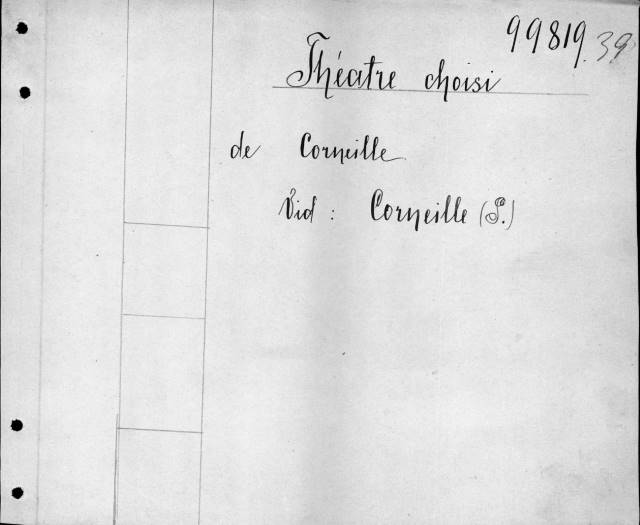 99819 39
Théatre choisi
de Corneille
Vid : Corneille (P.)